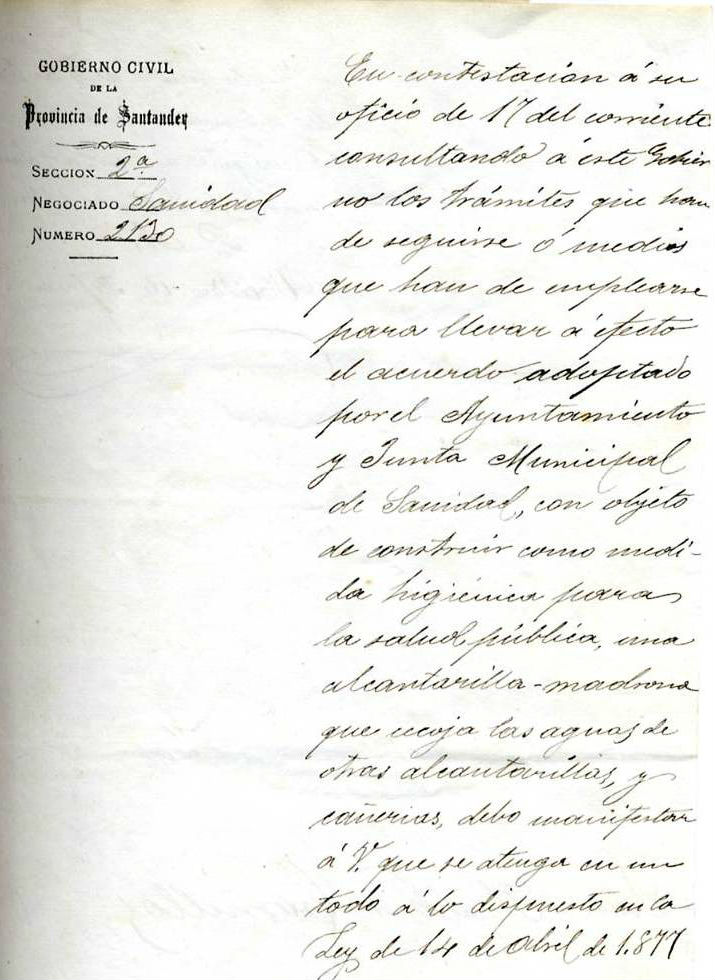 GOBIERNO CIVIL
DE LA
Provincia de Santander
SECCION 2ª
NEGOCIADO Sanidad
NUMERO 2130
En contestacion á su
oficio de 17 del corriente
consultando á éste Gobier
no los trámites que han
de seguirse ó medios
que han de emplearse
para llevar á efecto
el acuerdo adoptado
por el Ayuntamiento
y Junta Municipal
de Sanidad, con objeto
de construir como medi-
da higiénica para
la salud pública, una
alcantarilla-madrona
que recoja las aguas de
otras alcantarillas, y
cañerias, debo manifestar
á V. que se atenga en un
todo á lo dispuesto en la
Ley de 14 de abril de 1.877